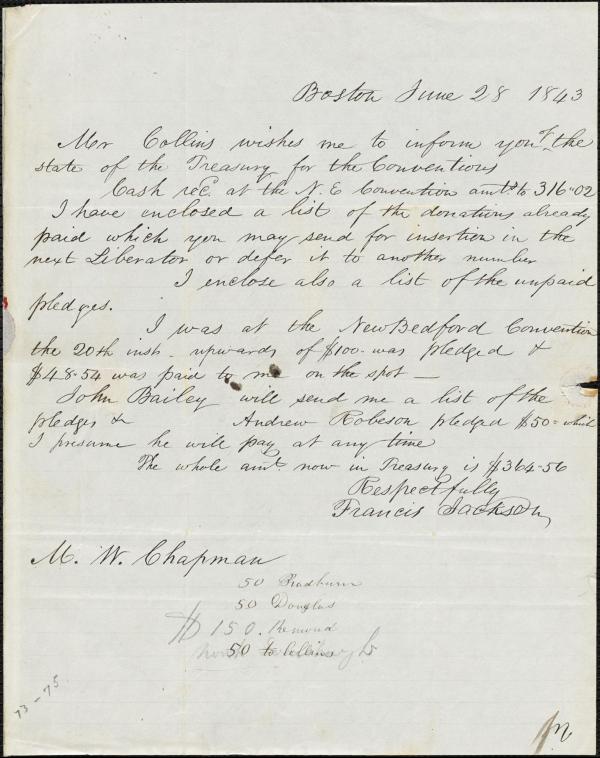 Boston June 28 1843
Mr Collins wishes me to inform you of the
state of the Treasury for the Conventions
Cash rec. at the N. E Convention amt.d to 316-02
I have enclosed a list of the donations already
paid which you may send for insertion in the
next Liberator or defer it to another number
I enclose also a list of the unpaid
pledges.
I was at the New Bedford Convention
the 20th inst - upwards of $100- was pledged &
$48-54 was paid to me on the spot -
John Bailey will send me a list of the
pledges & Andrew Robeson pledged $50= which
I presume he will pay at any time
The whole amt now in Treasury is $364-56
Respectfully
Francis Jackson
M. W. Chapman
50 Bradburn
50 Douglas
$ 150. Remond
50 to Collins
73-75